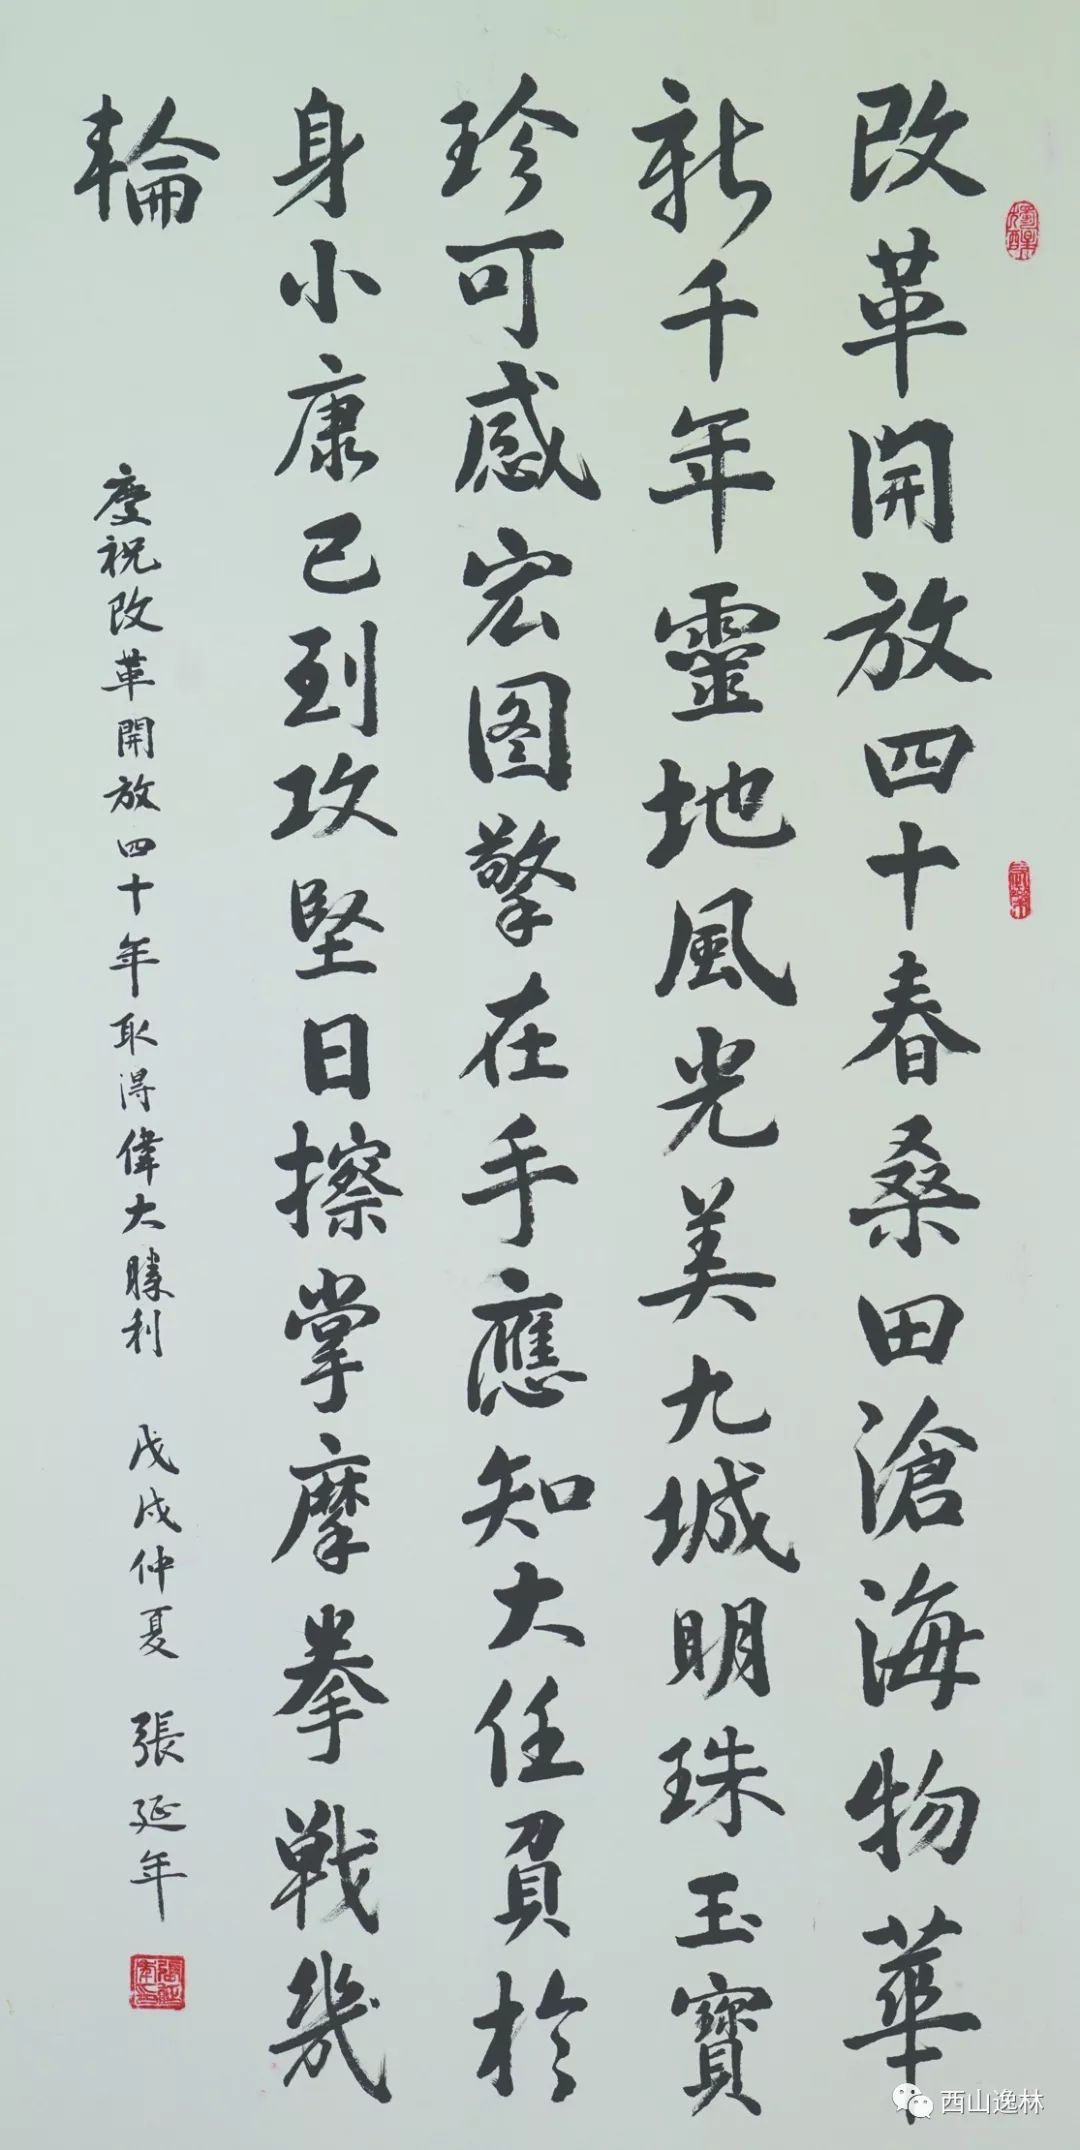 改革開放四十春桑田滄海物華
新千年靈地風光美九城明珠玉寶
珍可感宏图擎在手應知大任負於
身小康已到攻堅日擦掌摩拳戦幾
輪
慶祝改革開放四十年取得偉大勝利 戊戌仲夏 張延年
西山逸林